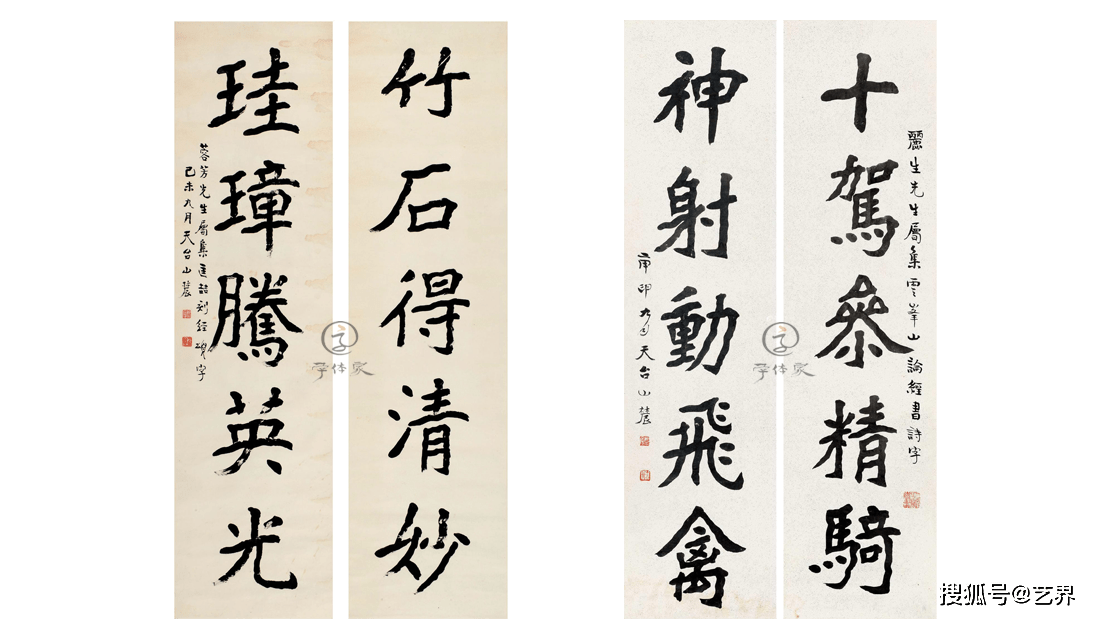 竹石得清妙
珪璋騰英光
蓉芳先生屬集匡喆刻經頌字
己未九月天台山農
麗生先生屬集雲峯山論經書詩字
十駕叅精騎
神射動飛禽
卯九月天台山農
字体家
字体家
搜狐号@艺界